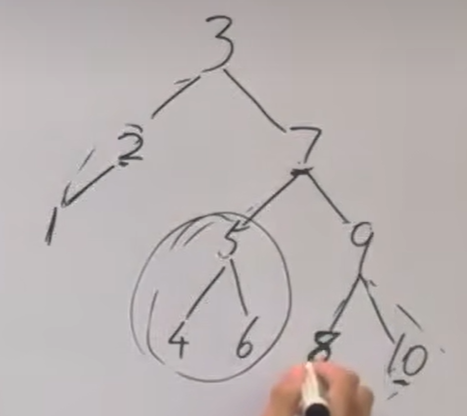 3
2 7
1 5 9
4 6 8 10